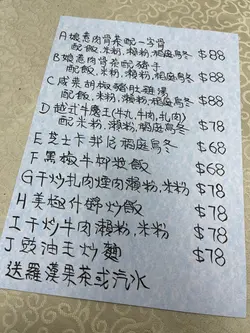 A 娘惹肉骨茶配一字骨
配飯、米粉、瀨粉、稻庭烏冬 $88
B 娘惹肉骨茶配豬手
配飯、米粉、瀨粉、稻庭烏冬 $88
C 咸菜胡椒豬肚雞湯
配飯、米粉、瀨粉、稻庭烏冬 $88
D 越式牛魔王(牛丸、牛肉、扎肉)
配米粉、瀨粉、稻庭烏冬 $78
E 芝士卡邦尼稻庭烏冬 $68
F 黑椒牛柳燴飯 $68
G 干炒扎肉煙肉瀨粉、米粉 $78
H 羗極什錦炒飯 $78
I 干炒牛肉瀨粉、米粉 $78
J 豉油王炒麵 $78
送羅漢果茶或汽水